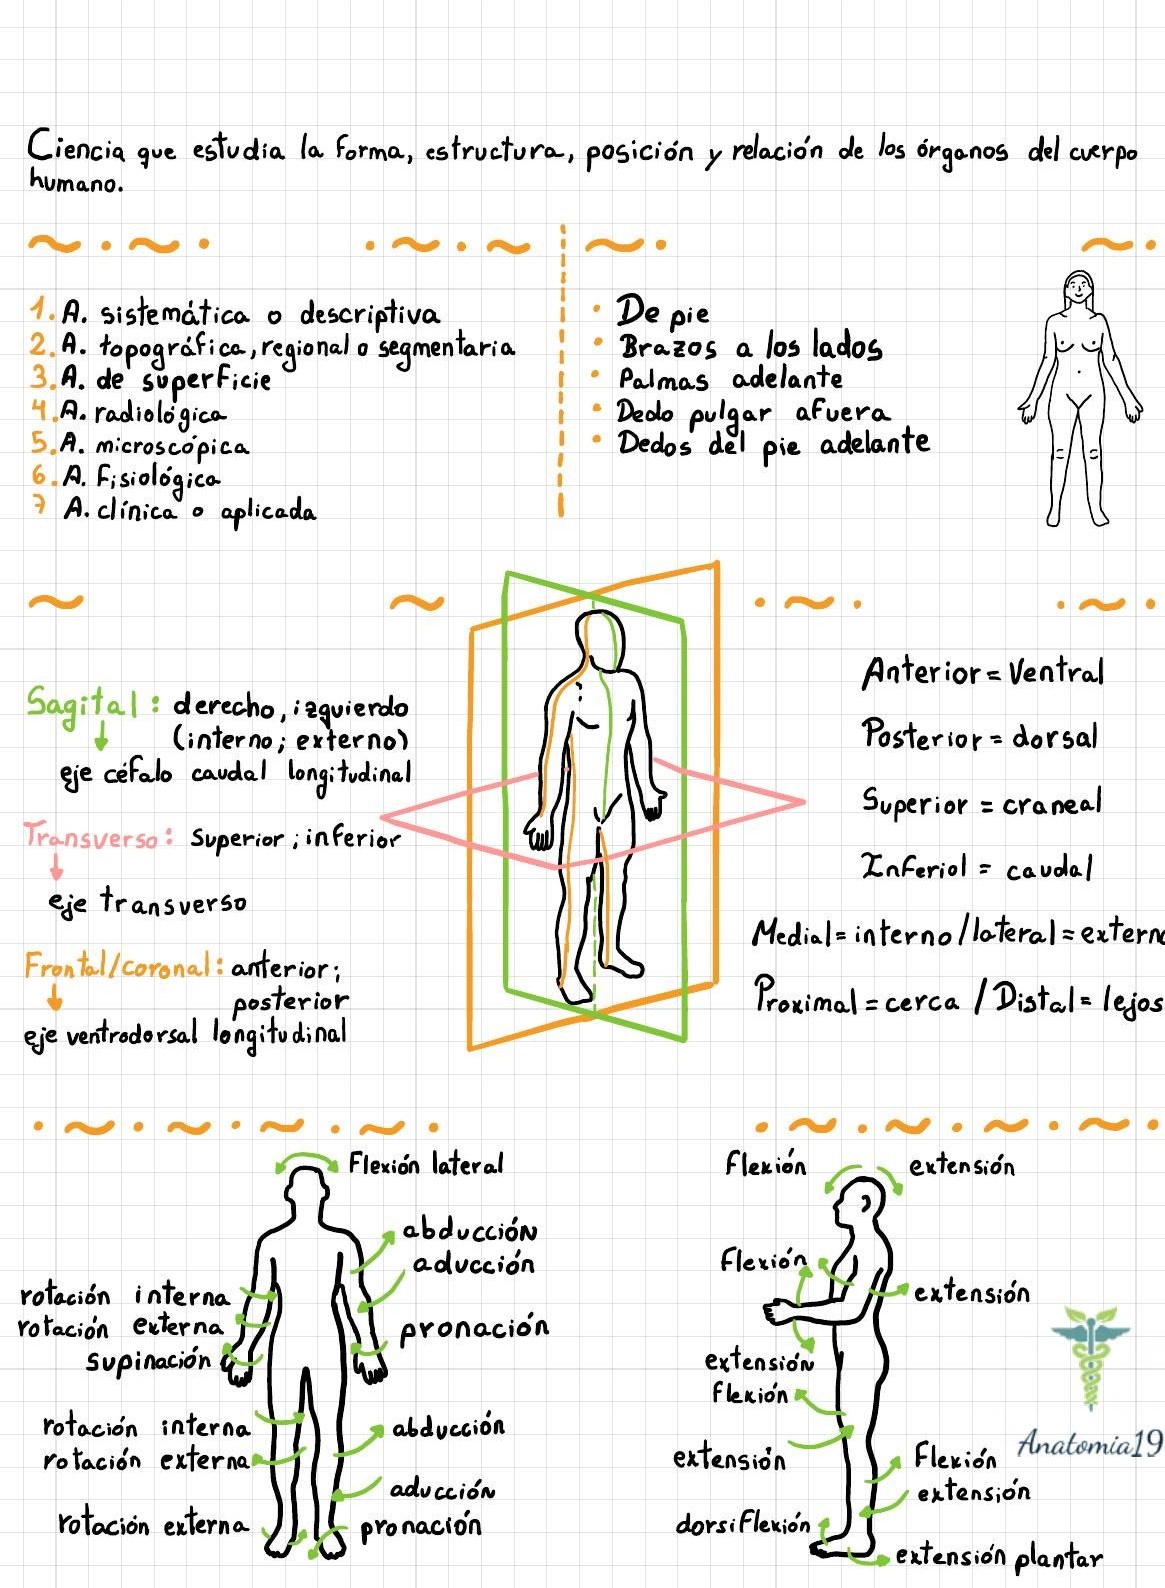 Ciencia que estudia la forma, estructura, posición y relación de los órganos del cuerpo
humano.
1. A. sistemática o descriptiva
2. A. topográfica, regional o segmentaria
3. A. de superficie
4. A. radiológica
5. A. microscópica
6. A. fisiológica
7 A. clínica o aplicada
• De pie
• Brazos a los lados
• Palmas adelante
• Dedo pulgar afuera
• Dedos del pie adelante
Sagital: derecho, izquierdo
(interno; externo)
eje céfalo caudal longitudinal
Transverso: Superior; inferior
eje transverso
Frontal/coronal: anterior;
posterior
eje ventrodorsal longitudinal
Anterior = Ventral
Posterior = dorsal
Superior = craneal
Inferiol = caudal
Medial = interno / lateral = externo
Proximal = cerca / Distal = lejos
Flexión lateral
abducción
aducción
rotación interna
rotación externa
supinación
pronación
rotación interna
rotación externa
abducción
aducción
rotación externa
pronación
Flexión
extensión
Flexión
extensión
extensión
flexión
extensión
Flexión
extensión
dorsiflexión
extensión plantar
Anatomia19